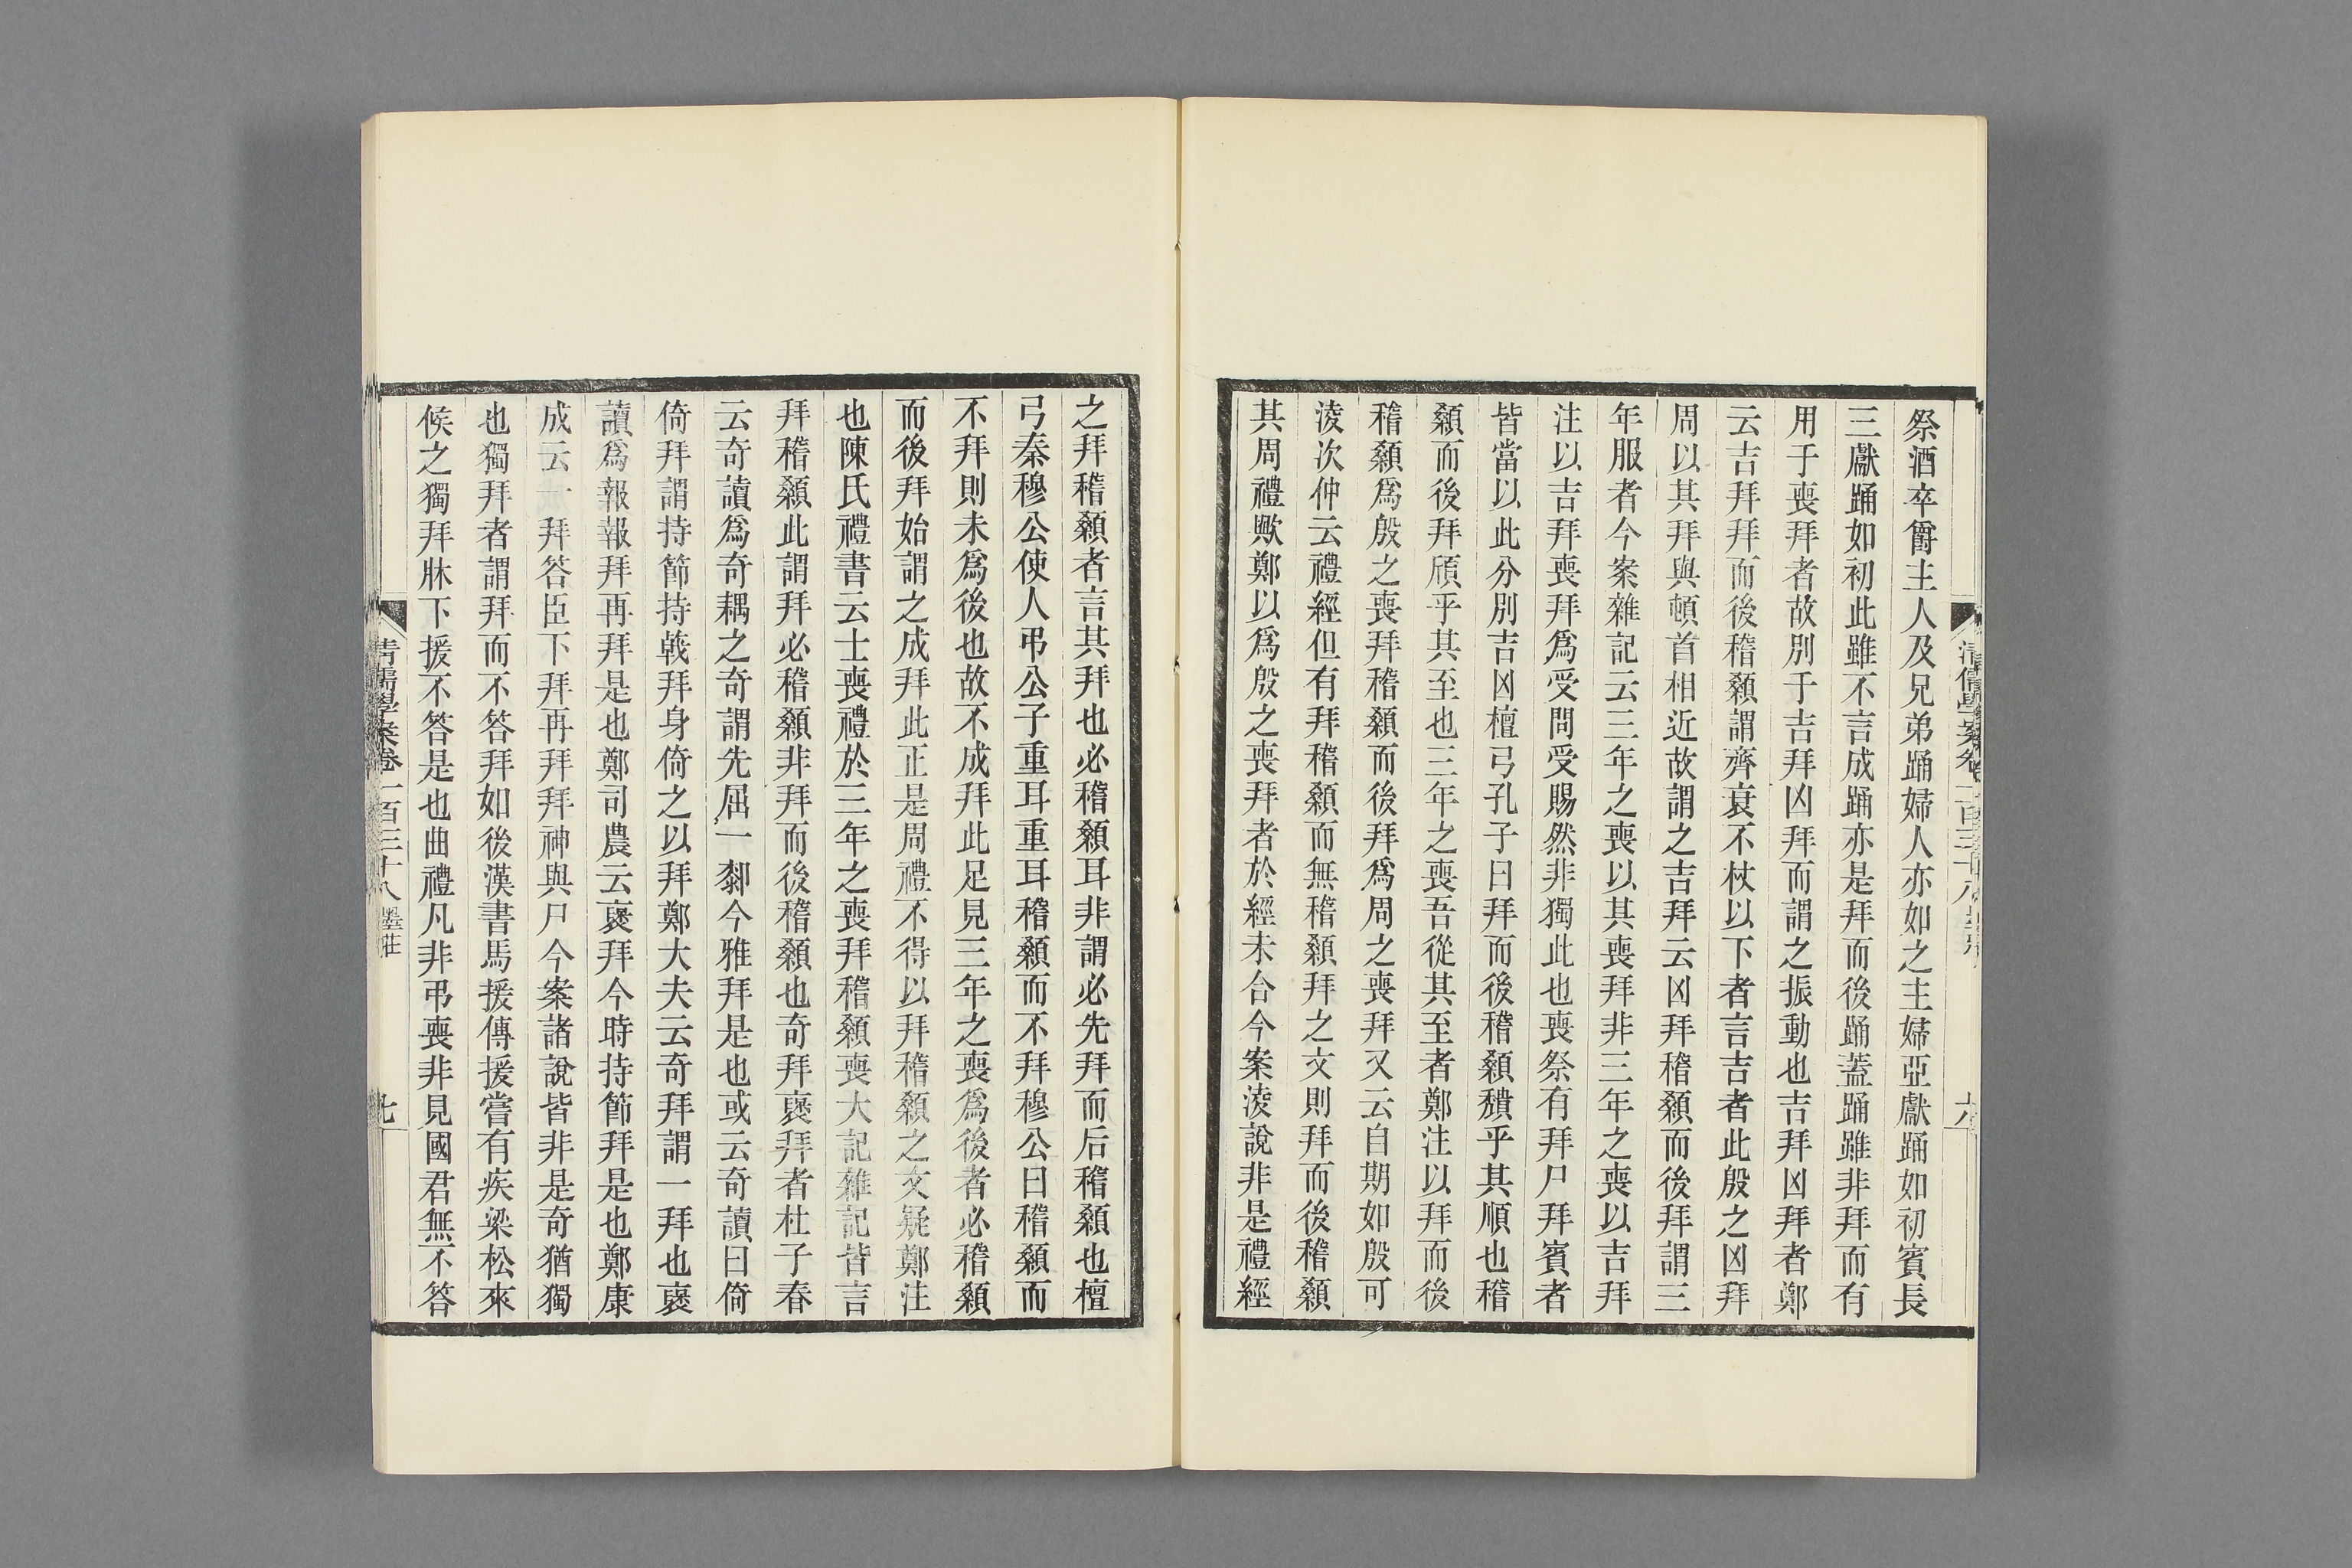 祭酒卒爵主人及兄弟踊婦人亦如之主婦亞獻踊如初賓長
三獻踊如初此雖不言成踊亦是拜而後踊蓋踊雖非拜而有
用于喪拜者故別于吉拜凶拜而謂之振動也吉拜凶拜者鄭
云吉拜拜而後稽顙謂齊衰不杖以下者言吉者此殷之凶拜
周以其拜與頓首相近故謂之吉拜云凶拜稽顙而後拜謂三
年服者今案雜記云三年之喪以其喪拜非三年之喪以吉拜
注以吉拜喪拜爲受問受賜然非獨此也喪祭有拜尸拜賓者
皆當以此分別吉凶檀弓孔子曰拜而後稽顙穨乎其順也稽
顙而後拜頎乎其至也三年之喪吾從其至者鄭注以拜而後
稽顙爲殷之喪拜稽顙而後拜爲周之喪拜又云自期如殷可
淩次仲云禮經但有拜稽顙而無稽顙拜之文則拜而後稽顙
其周禮歟鄭以爲殷之喪拜者於經未合今案淩說非是禮經
清儒學案卷二百三十八
六
之拜稽顙者言其拜也必稽顙耳非謂必先拜而后稽顙也檀
弓秦穆公使人弔公子重耳重耳稽顙而不拜穆公曰稽顙而
不拜則未爲後也故不成拜此足見三年之喪爲後者必稽顙
而後拜始謂之成拜此正是周禮不得以拜稽顙之文疑鄭注
也陳氏禮書云士喪禮於三年之喪拜稽顙喪大記雜記皆言
拜稽顙此謂拜必稽顙非拜而後稽顙也奇拜襃拜者杜子春
云奇讀爲奇耦之奇謂先屈一厀今雅拜是也或云奇讀曰倚
倚拜謂持節持戟拜身倚之以拜鄭大夫云奇拜謂一拜也襃
讀爲報報拜再拜是也鄭司農云襃拜今時持節拜是也鄭康
成云一拜答臣下拜再拜拜神與尸今案諸說皆非是奇猶獨
也獨拜者謂拜而不答拜如後漢書馬援傳援嘗有疾梁松來
候之獨拜牀下援不答是也曲禮凡非弔喪非見國君無不答
清儒學案卷一百三十八 墨莊
七